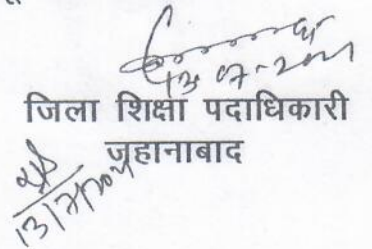 13-07-2021
जिला शिक्षा पदाधिकारी
जहानाबाद
13/7/2021